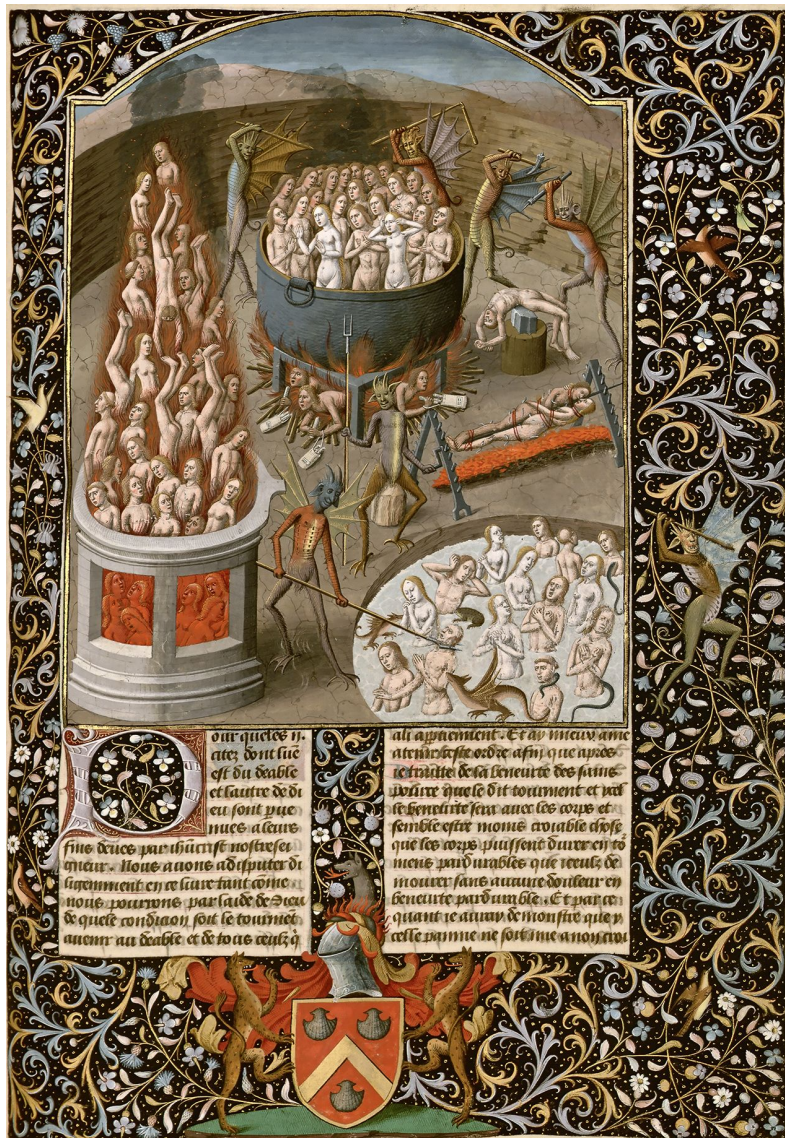 our queles ij.
citez dont lune
est du deable
et lautre de di
eu sont pue
nues a leurs
fins deues par ihucrist nostre sei
gneur. Nous auons a disputer di
ligemment en ce liure tant come
nous pourrons par laide de dieu
de quele condicion soit le tourmet
auenir au deable et de tous ceulz q
ali apptienment. Et ay mieux ame
atenir ceste ordre afin que apres
ie traitte de la beneurte des sains
pource que le dit tourment et
la beneurte sera auec les corps et
semble estre moins croiable chose
que les corps puissent durer en to
mens pardurables que
mourer sans aucune douleur en
beneurte pardurable. Et par ce
quant ie auray demonstre que
celle painne ne soit mie a non cro